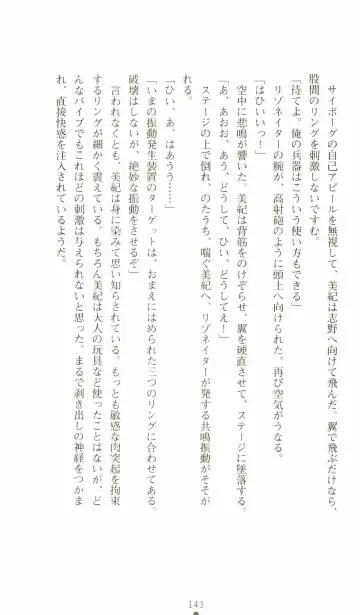 サイボーグの自己アピールを無視して、美紀は志野へ向けて飛んだ。翼で飛ぶだけなら、
股間のリングを刺激しないですむ。
「待てよ。俺の兵器はこういう使い方もできる」
リゾネイターの腕が、高射砲のように頭上へ向けられた。再び空気がうなる。
「はひいいっ！」
空中に悲鳴が響いた。美紀は背筋をのけぞらせ、翼を硬直させて、ステージに墜落する。
「あ、あおお、あう、どうして、ひい、どうしてえ！」
ステージの上で倒れ、のたうち、喘ぐ美紀へ、リゾネイターが発する共鳴振動がそそが
れる。
「ひい、あ、はあうう……」
「いまの振動発生装置のターゲットは、おまえにはめられた三つのリングに合わせてある。
破壊はしないが、絶妙な振動をさせるぞ」
言われなくとも、美紀は身に染みて思い知らされている。もっとも敏感な肉突起を拘束
するリングが細かく震えている。もちろん美紀は大人の玩具など使ったことはないが、ど
んなバイブでもこれほどの刺激は与えられないと思った。まるで剥き出しの神経をつかま
れ、直接快感を注入されているようだ。
143